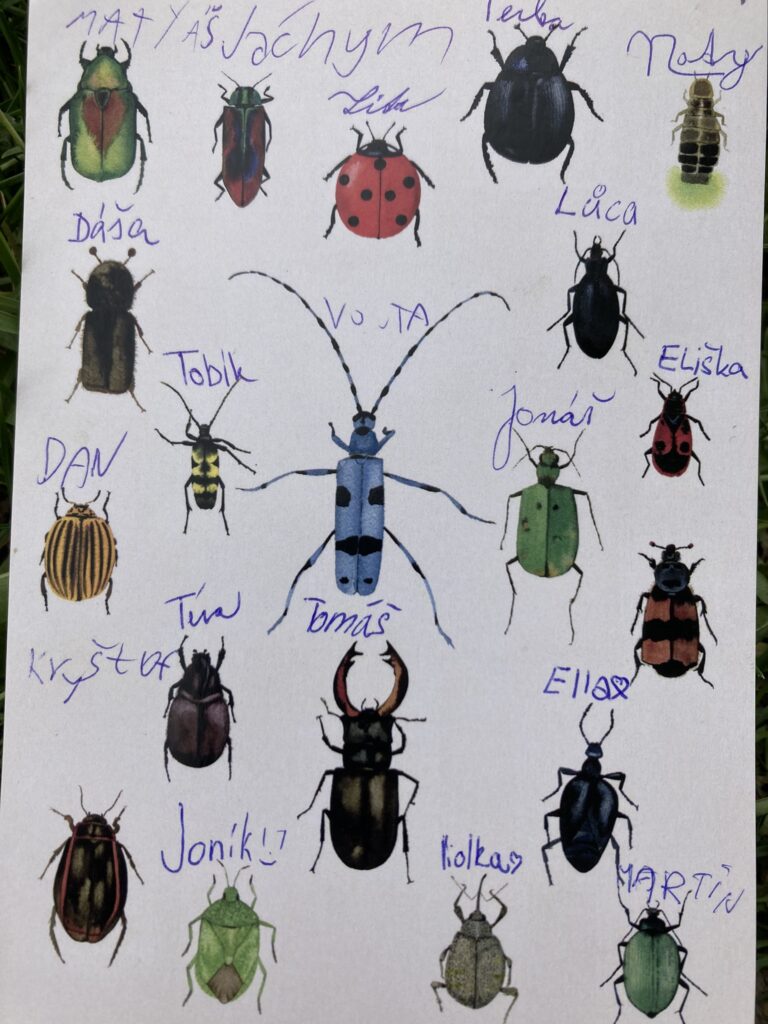 MATYÁŠ
Jáchym
Terka
Lída
Naty
Lůca
Dáša
VOJTA
Tobík
ELiška
Jonáš
DAN
Tína
Tomáš
Kryštof
Ella
Joník
Violka
MARTIN